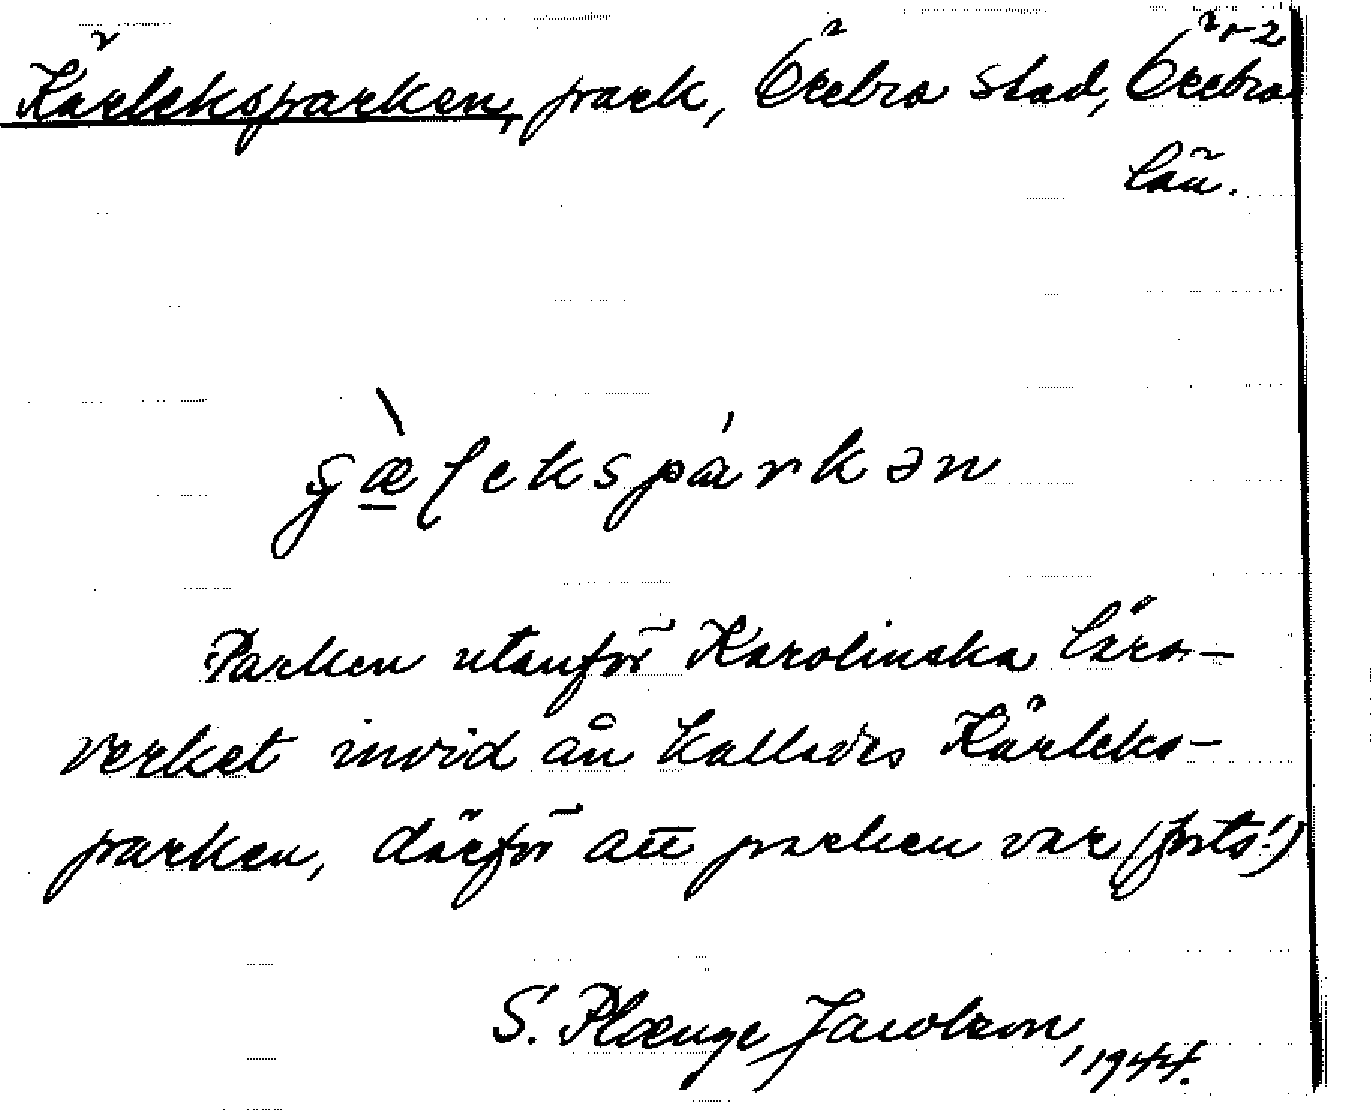 Kärleksparken, park, Örebro stad, Örebro
län.
Parken utanför Karolinska läro-
verket invid ån kallades Kärleks-
parken, därför att parken var (forts!)
S. Plænge Jacobson, 1944.